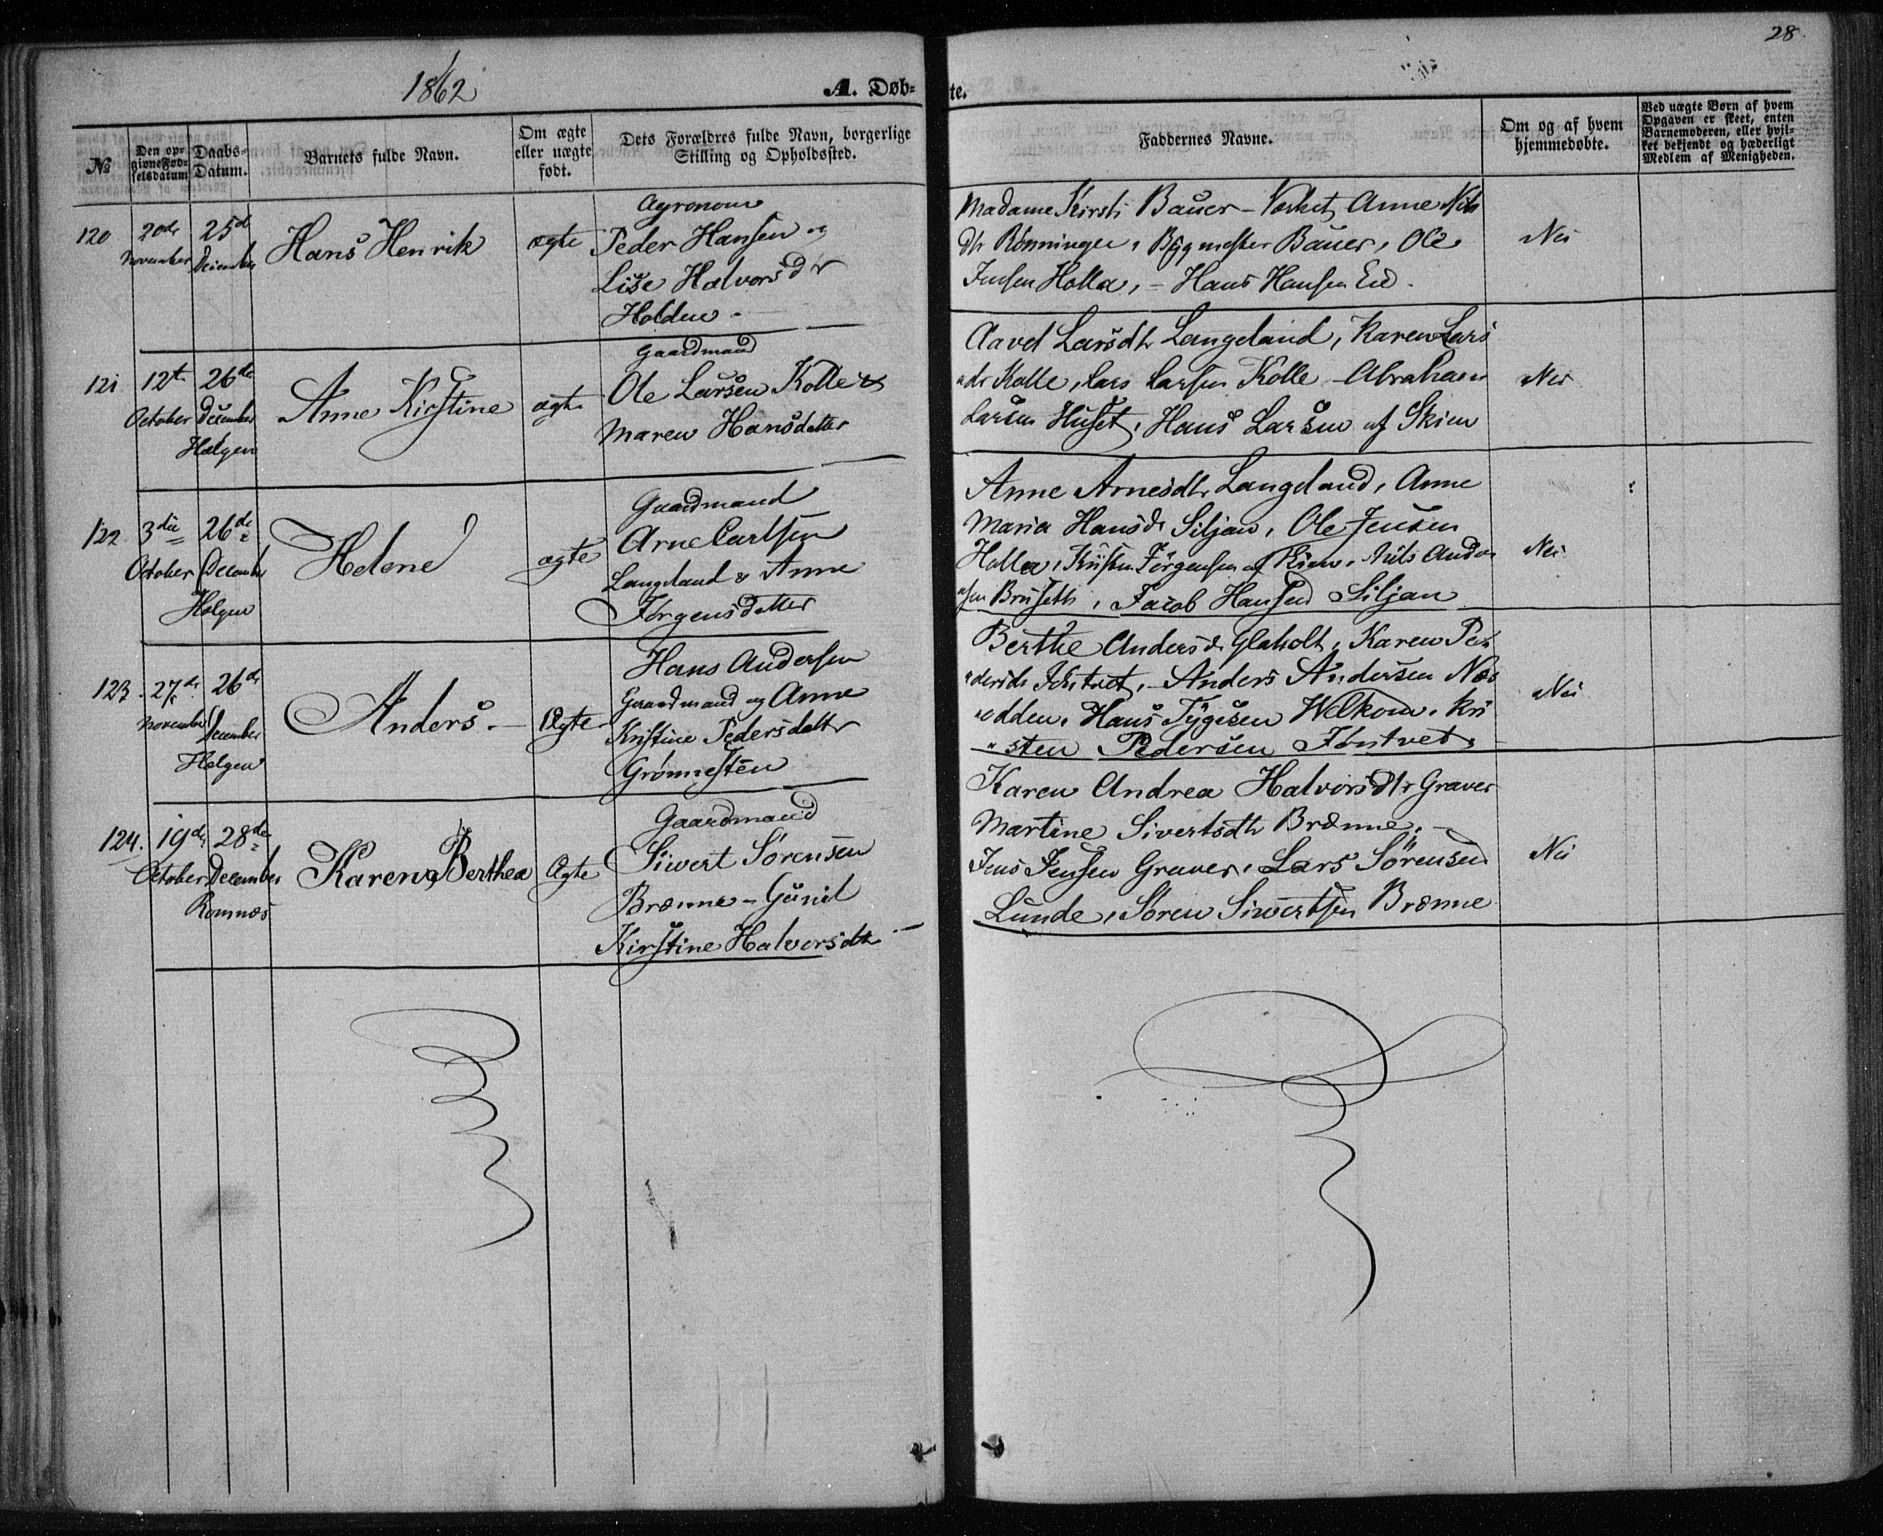 28
1862
A. Døb-
te.
No
Den op-
givne Fød-
selsdatum
Daabs-
Datum.
Barnets fulde Navn.
Om ægte
eller uægte
født.
Dets Forældres fulde Navn, borgerlige
Stilling og Opholdssted.
Faddernes Navne.
Om og af hvem
hjemmedøbte.
Ved uægte Børn af hvem
Opgaven er skeet, enten
Barnemoderen, eller hvil-
ket bekjendt og hæderligt
Medlem af Menigheden.
120
20de
November
25de
December
Hans Henrik
ægte
Agronom
Peder Hansen og
Lise Halvorsdtr
Holden
Madame Kirsti Bauer - Værket, Anne Nils
dtr Rønningen, Bygmester Bauer, Ole
Jensen Holla, - Hans Hansen Eie.
Nei
121
12te
October
26de
December
Helgen
Anne Kirstine
ægte
Gaardmand
Ole Larsen Kolle &
Maren Hansdatter
Aavel Larsdtr Langeland, Karen Lars
dtr Kolle, Lars Larsen Kolle - Abraham
Larsen Huset, Hans Larsen af Skien
Nei
122
3die
October
26de
December
Helgen
Helene
ægte
Gaardmand
Arne Carlsen
Langeland & Anne
Jørgensdatter
Anne Arnesdtr Langeland, Anne
Maria Hansdr Siljan, Ole Jensen
Holla, Kristen Jørgensen af Skien, Nils Anders
sen Bruseth, Jacob Hansen Siljan
Nei
123.
27de
November
26de
December
Helgen
Anders.
Ægte
Hans Andersen
Gaardmand og Anne
Kristine Pedersdatter
Grønnesten
Berthe Andersdr Glaholt, Karen Pe
dersdr Førstvet, - Anders Andersen Næs
odden, Hans Tygesen Welkom, Kri
sten Pedersen Førstvet,
Nei
124.
19de
October
28de
December
Romnæs
Karen Berthea
Ægte
Gaardmand
Siwert Sørensen
Brænne - Gunil
Kirstine Halvorsdtr
Karen Andrea Halvorsdtr Graver
Martine Sivertsdtr Brænne,
Jens Jensen Graver, Lars Sørensen
Lunde, Søren Siwertsen Brænne
Nei